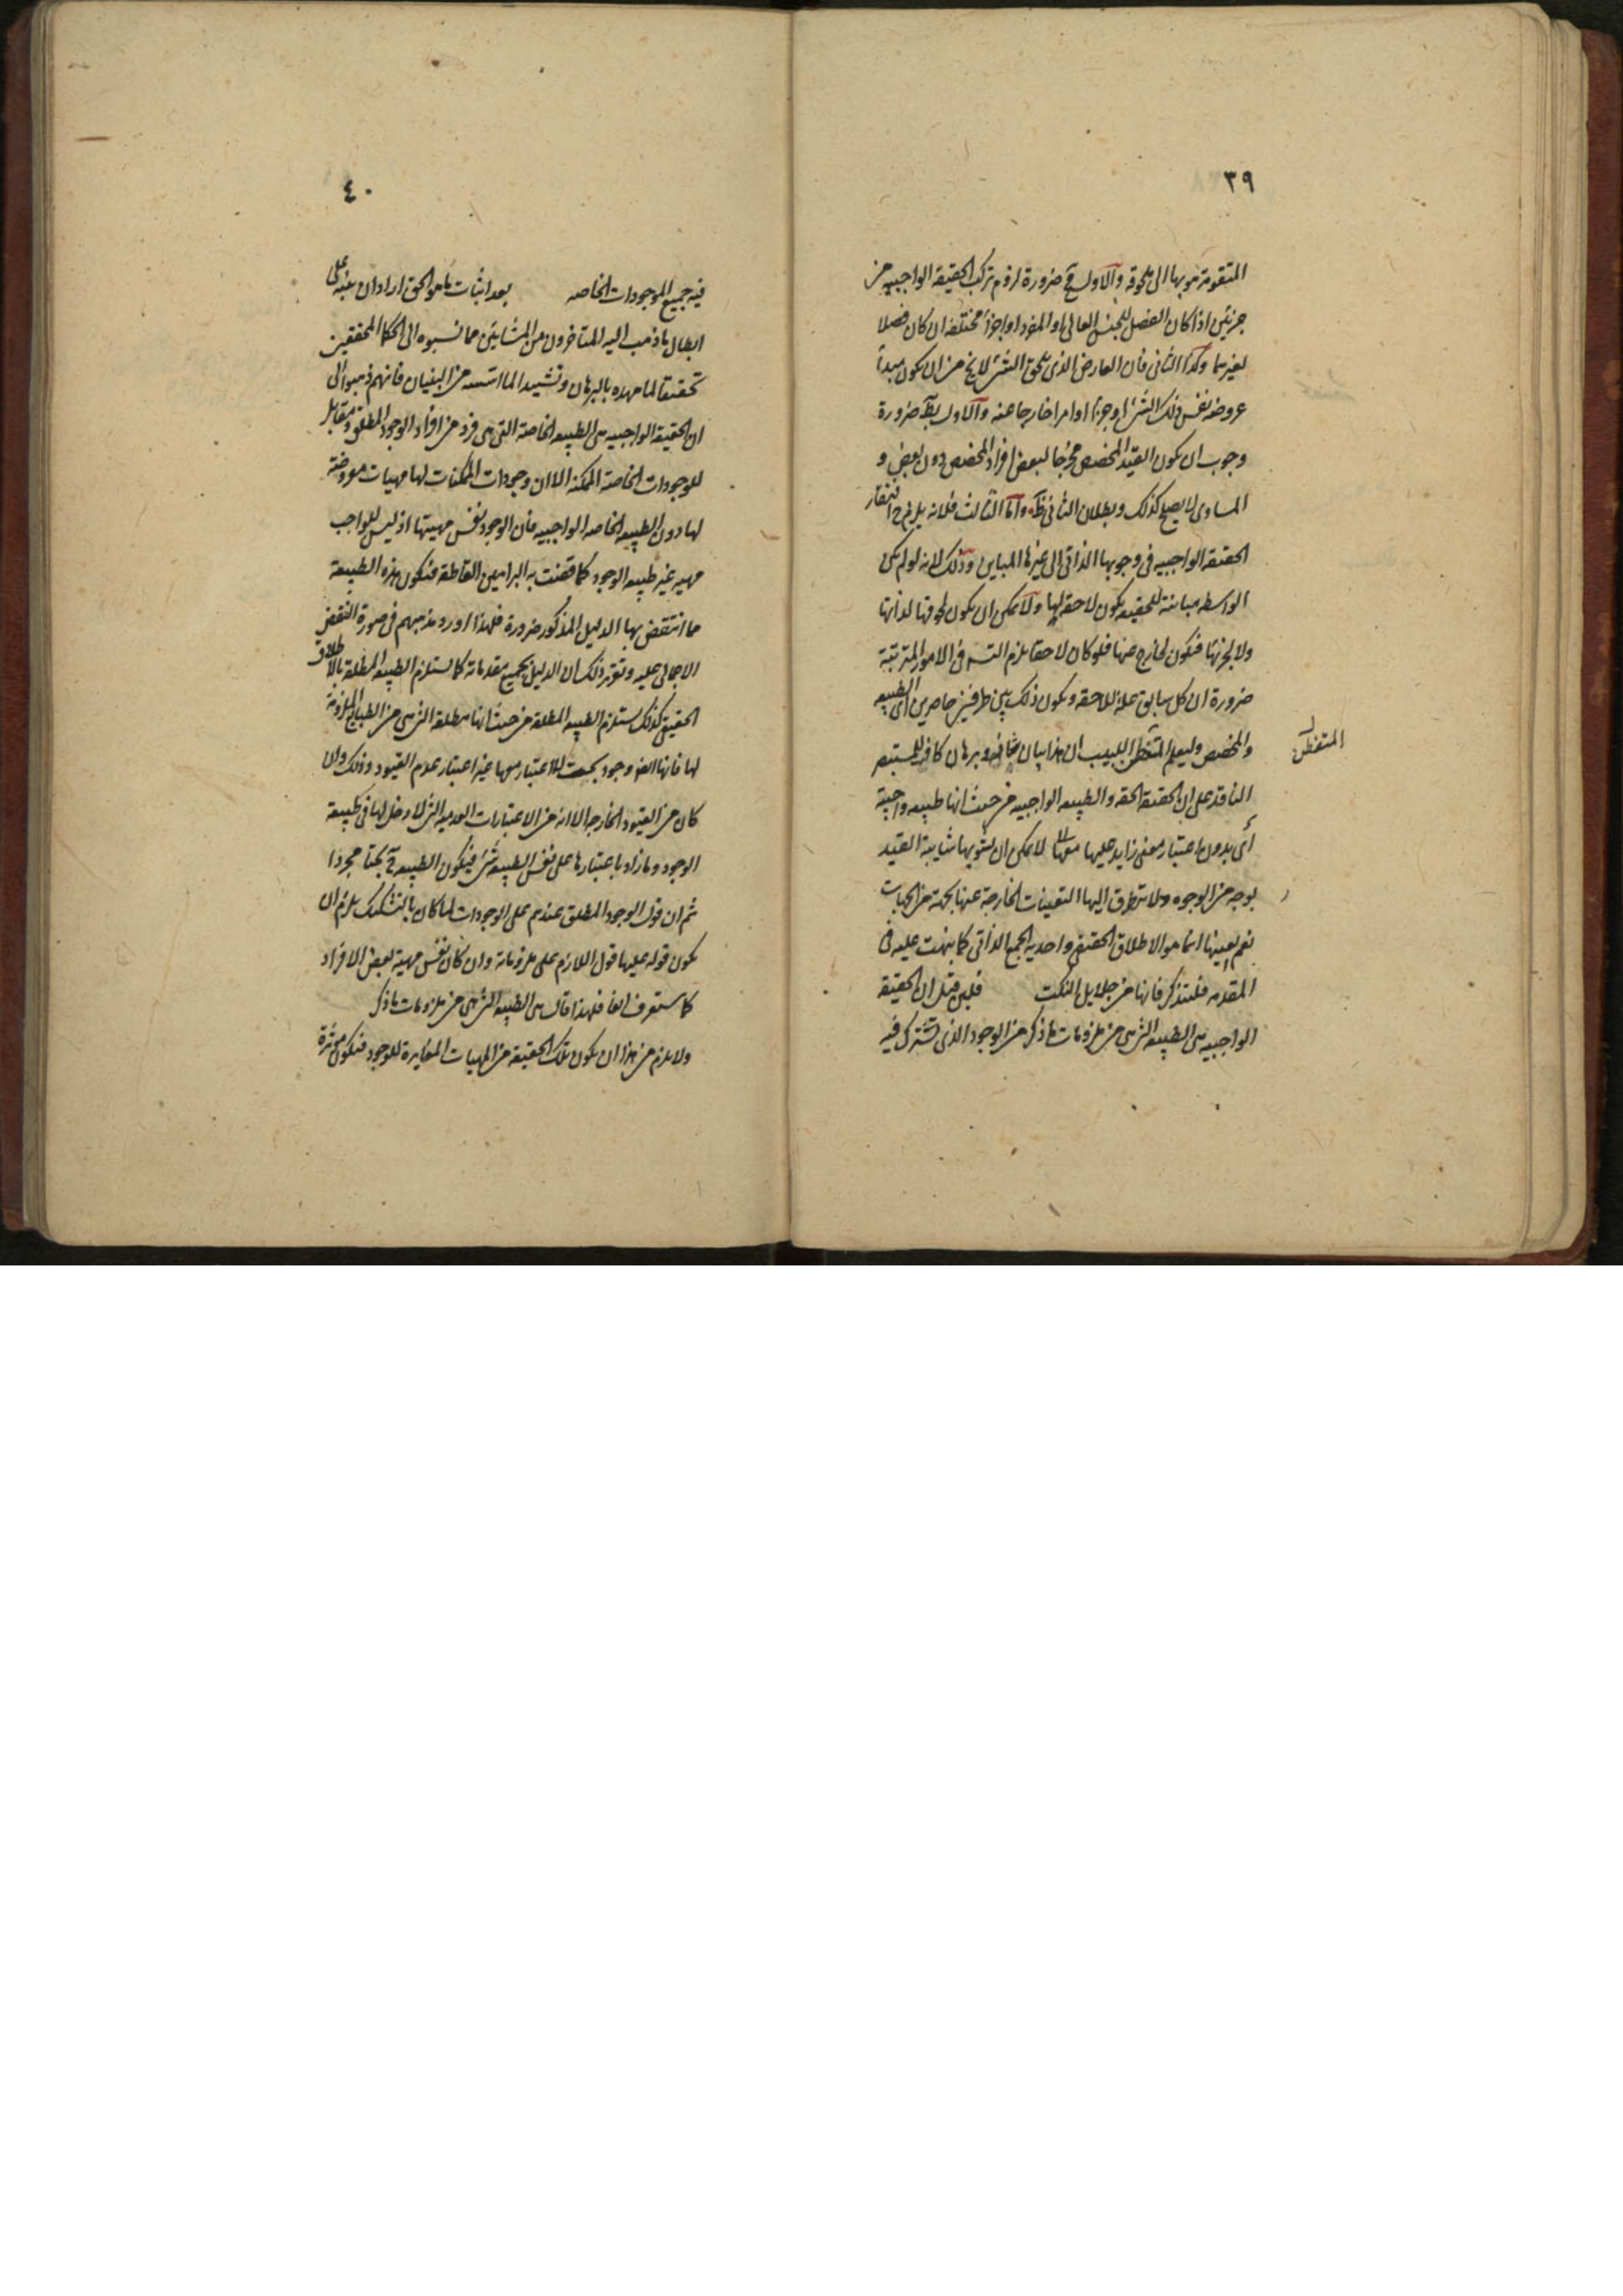 ٣٩
المتقومة هو بها الى ملحوقه والاول مح ضرورة لزوم تركب الحقيقة الواجبية من
جزئين اذا كان الفصل للجنس العالى او المفرد او اجزاء مختلفه ان كان فصلا
لغيرهما وكذا الثانى فان العارض الذى يلحق الشئ لا يخ من ان يكون مبدأ
عروضه نفس ذلك الشئ او جزئه او امرا خارجا عنه والاول بط ضرورة
وجوب ان يكون القيد المخصص مخرجا لبعض افراد المخصص دون بعض و
المساوى لا يصلح كذلك وبطلان الثانى ظ واما الثالث فلانه يلزم ح افتقار
الحقيقة الواجبيه فى وجوبها الذاتى الى غيرها المباين وذلك لانه لو لم تكن
الواسطه مباينة للحقيقه يكون لاحقه لها ولا يمكن ان يكون لحوقها لذاتها
ولا لجزئها فتكون لخارج عنها فلو كان لاحقا يلزم التسه فى الامور المترتبة
ضرورة ان كل سابق علة للاحقه ويكون ذلك بين طرفين حاصرين اى الطبيعه
والمخصص وليعلم المتفطن اللبيب ان هذا بيان شاف وبرهان كاف للمستبصر
المتفطن
الناقد على ان الحقيقة الحقه والطبيعه الواجبيه من حيث انها طبيعه واجبية
أى بدون اعتبار معنى زايد عليها معها لا يمكن ان يشوبها شايبة القيد
بوجه من الوجوه ولا يتطرق اليها التعينات الخارجة عنها بجهة من الجهات
نعم تعينها انما هو الاطلاق الحقيقى واحدية الجمع الذاتى كما نبهت عليه فى
المقدمه فليتذكر فانها من جلايل النكت فلين قيل ان الحقيقة
الواجبيه هى الطبيعه التى هى من ملزومات ما ذكر من الوجود الذى تشترك فيه
٤٠
فيه جميع الموجودات الخاصه بعد اثبات ما هو الحق اراد ان ينبه على
ابطال ما ذهب اليه المتاخرون من المشايين مما نسبوه الى الحكما المحققين
تحقيقا لما مهده بالبرهان وتشييدا لما اسسه من البنيان فانهم ذهبوا الى
ان الحقيقة الواجبيه هى الطبيعه الخاصة التى هى فرد من افراد الوجود المطلق ومقابل
للوجودات الخاصة الممكنه الا ان وجودات الممكنات لها مهيات معروضة
لها دون الطبيعه الخاصه الواجبيه فان الوجود نفس مهيتها اذ ليس للواجب
مهيه غير طبيعه الوجود كما قضت به البراهين القاطعة فتكون هذه الطبيعة
مما انتقض بها الدليل المذكور ضرورة فلهذا اورد مذهبهم فى صورة النقض
الاجمالى عليه وتقرير ذلك ان الدليل بجميع مقدماته كما يستلزم الطبيعه المطلقة بالاطلاق
الحقيقى كذلك يستلزم الطبيعه المطلقة من حيث انها مطلقة التى هى من الطبايع الملزومة
لها فانها ايضا وجود بحت لا اعتبار معها غير اعتبار عدم القيود وذلك وان
كان من القيود الخارجه الا انه من الاعتبارات العدميه التى لا دخل لها فى طبيعة
الوجود وما زاد باعتبارها على نفس الطبيعه شئ فيكون الطبيعه ح بحتا مجردا
ثم ان قول الوجود المطلق عندهم على الوجودات لما كان بالتشكيك يلزم ان
يكون قوله عليها قول اللازم على ملزوماته وان كان نفس مهية لبعض الافراد
كما ستعرف ايضا فلهذا قال هى الطبيعه التى هى من ملزومات ما ذكر
ولا يلزم من هذا ان يكون تلك الحقيقة من المهيات المغايرة للوجود فتكون مؤثرة